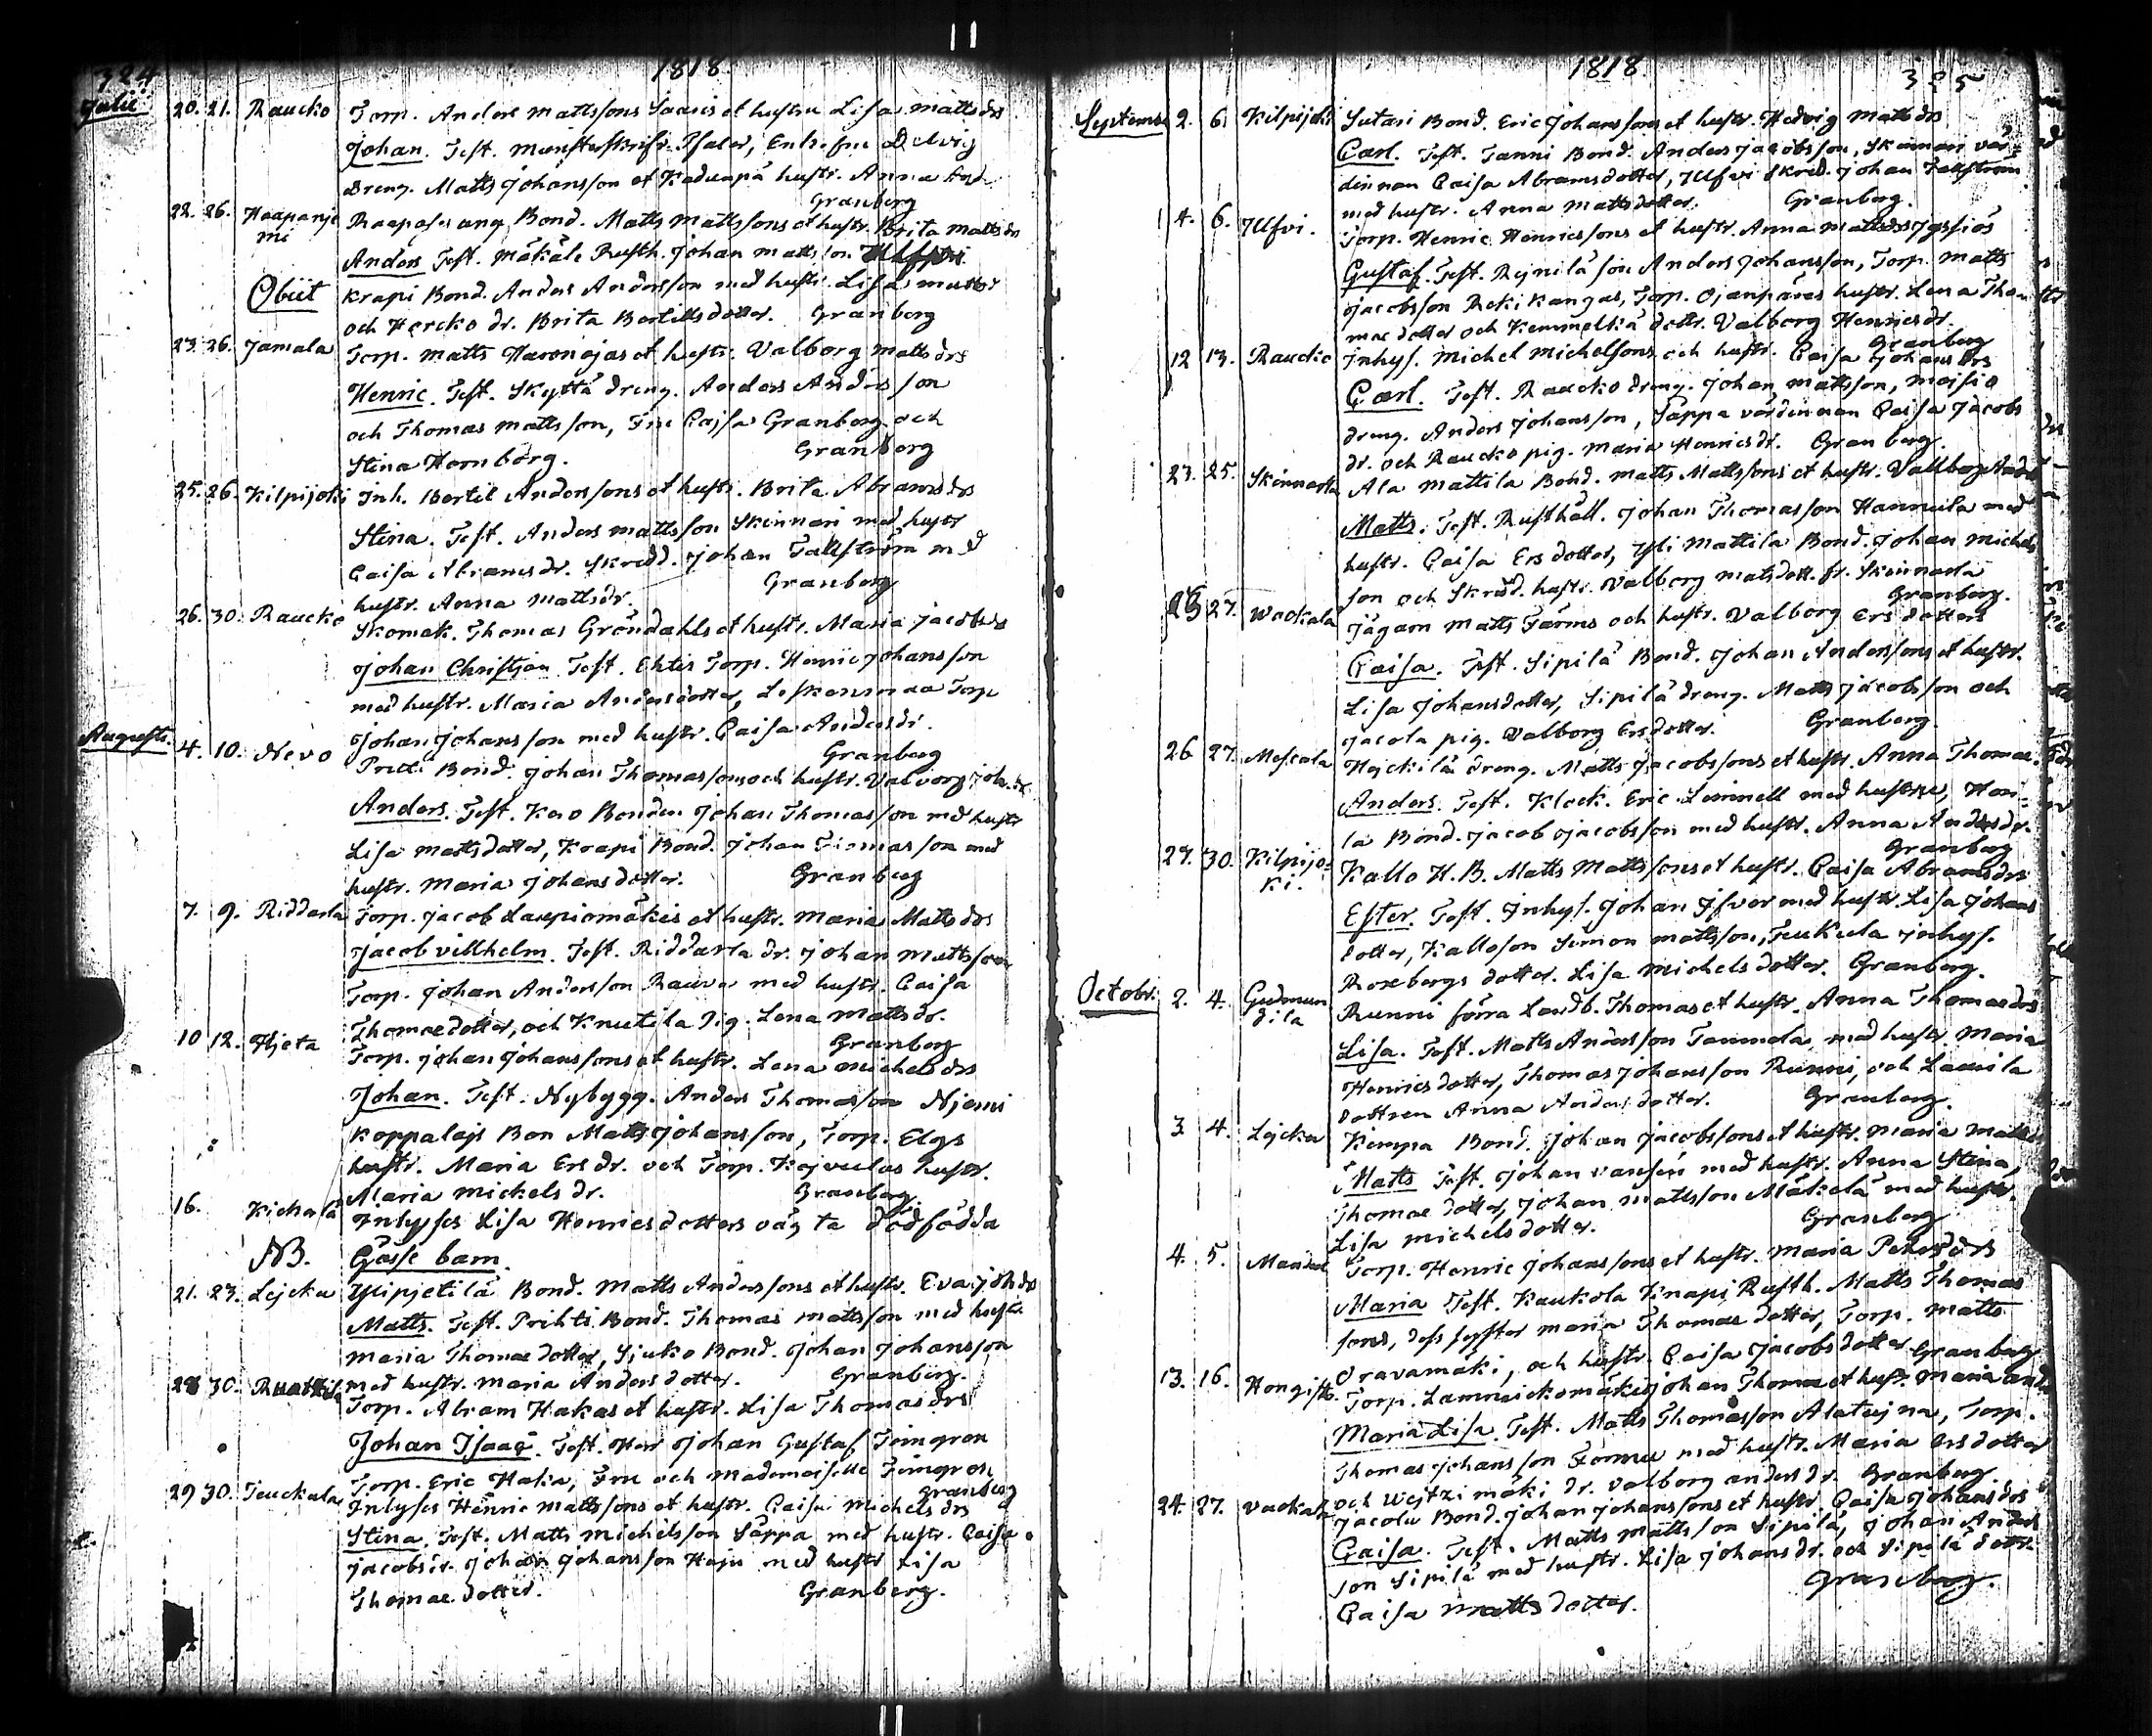 324
1818.
Julii
20. 21. Raucko Torp. Anders Mattssons Saaris et hustru Lisa Matts drs
Johan. Test. Munsterskrifv. Isaler, Enkefru Delvig
Dreng. Matts Johansson et Kaduapä hustr. Anna And
Granberg
22. 26. Haapanje Bond. Matts Mattssons et hustr. Brita Matts dr
mi
Anders Test. Mäkälä Rusth. Johan Mattsson
Obiit Krapi Bond. Anders Andersson med hustr. Lisa Mattsdr
och Hercko dr. Brita Bertills dotter. Granberg
23. 26. Jamala Torp. Matts Haronojas et hustr. Valborg Matts drs
Henric. Test. Skyttä Dreng. Anders Andersson
och Thomas Mattsson, Fru Caisa Granberg och
Stina Hornborg. Granberg
25. 26. Kilpijoki Inh. Bertil Anderssons et hustr. Brita Abrams drs
Stina. Test. Anders Mattsson Skinnari med hustr
Caisa Abrams dr. Skredd. Johan Tallström md
hustr. Anna Mattsdr. Granberg
26. 30. Raucko Skomak. Thomas Gröndahls et hustr. Maria Jacobsdr
Johan Christian Test. Ehtis Torp. Henric Johansson
med hustr. Maria Andersdotter, Leskenmaa Torp
Johan Johansson med hustr. Caisa Anders dr.
Granberg
Augusti. 4. 10. Nevo Pretti Bond. Johan Thomassons och hustr. Valborg Joh. dr
Anders. Test. Kero Bonden Johan Thomasson md hustr
Lisa Mattsdotter, Krapi Bond. Johan Tiomasson med
hustr. Maria Johans dotter. Granberg
7. 9. Riddarla Torp. Jacob Laupiomäkis et hustr. Maria Matts drs
Jacob villhelm. Test. Riddarla dr. Johan Mattsson
Torp. Johan Andersson Rauva med hustr. Caisa
Thomaedotter, och Knutila Pig. Lena Mattsdr.
Granberg
10 12. Hjeta Torp. Johan Johanssons et hustr. Lena Michels drs
Johan. Test. Nybygg. Anders Thomasson Njemi
Koppalajs Bon Matts Johansson, Torp. Elgs
hustr. Maria Ers dr. och Torp. Kojvulas hustr.
Maria Mickels dr. Granberg.
16. Kichala Inhyses Lisa Henricsdotters oägta dödfödda
NB. Gosse barn.
21. 23. Lejcku Ylipjetilä Bond. Matts Anderssons et hustr. Eva Joh drs
Matts. Test. Prihti Bond. Thomas Mattsson med hustr
Maria Thomae dotter, Sjuko Bond. Johan Johansson
med hustr. Maria Anders dotter. Granberg.
28 30. Ruattila Torp. Abram Hakas et hustr. Lisa Thomas drs
Johan Isaac. Test. Herr Johan Gustaf Timgren
Torp. Eric Haka, Fru och Mademoiselle Timgren
Granberg
29 30. Teuckula Inhyses Henric Mattssons et hustr. Caisa Michels drs
Stina. Test. Matts Michelsson Säppä med hustr. Caisa
Jacobsdr. Johan Johansson Haju med hustr Lisa
Thomae dotter. Granberg.
1818.
325
Septembr 2. 6. Kilpijoki Sutari Bond. Eric Johanssons et hustr. Hedvig Matts drs
Carl. Test. Tanni Bond. Anders Jacobsson, Skinnari vär-
dinnan Caisa Abramsdotter, Ylfvi Skred. Johan Tallström
med hustr. Anna Mattsdotter. Granberg.
4. 6. Ylfvi. Torp. Henric Henricssons et hustr. Anna Mattsdrs
Gustaf. Test. Rejnilä son Anders Johansson, Torp. Matts
Jacobsson Rekikangas, Torp. Ojanpäras hustr. Lena Tho-
mae dotter och Kemmelkä dottr. Valborg Henricsdr.
Granberg
12 13. Raucko Inhys. Michel Michelsons och hustr. Caisa Johans drs
Carl. Test. Raucko dreng. Johan Mattsson, Moisio
dreng. Anders Johansson, Säppa värdinnan Caisa Jacobs
dr. och Raucko pig. Maria Henricsdr. Granberg.
23. 25. Skinnarla Ala Mattila Bond. Matts Mattssons et hustr. Vallborg And
Matts. Test. Rusthåll. Johan Thomasson Hannula med
hustr. Caisa Ers dotter, Yli Mattila Bond. Johan Michels
son och Skräd. hustr. Valborg Matsdott. fr. Skinnarla
Granberg.
25 27. Wackala Jägarn Matts Färms och hustr. Valborg Ers dotters
Caisa. Test. Sipilä Bond. Johan Anderssons et hustr.
Lisa Johansdotter, Sipilä dreng. Matts Jacobsson och
Jacola pig. Valborg Ersdotter. Granberg.
26 27. Mescala Hejckilä dreng. Matts Jacobssons et hustr. Anna Thomae
Anders. Test. Klock. Eric Lemnell med hustru, Hon-
la Bond. Jacob Jacobsson med hustr. Anna Anders dr.
Granberg
27. 30. Kilpijo- Kallo H.B. Matts Mattssons et hustr. Caisa Abrams drs
ki.
Ester. Test. Inhys. Johan Isver med hustr. Lisa Johans
dotter, Kalloson Simon Mattsson, Teukula inhys.
Rosebergs dotter. Lisa Michels dotter. Granberg.
Octobr. 2. 4. Gudmun Runni förra Landb. Thomas et hustr. Anna Thomasdrs
dila
Lisa. Test. Matts Andersson Tammela med hustr. Maria
Henrics dotter, Thomas Johansson Runni, och Laurila
dottren Anna Anders dotter. Granberg.
3. 4. Lejcku Kemppa Bond. Johan Jacobssons et hustr. Maria Matts
Matts Test. Johan med hustr. Anna Stena,
Thomae dotter, Johan Mattsson Mäkelä med hustr.
Lisa Michelsdotter. Granberg
4. 5. Torp. Henric Johanssons et hustr. Maria Petersdrs
Maria Test. Kaukola Knapi Rusth. Matts Thomas
sons, dess syster Maria Thomae dotter, Torp. Matts
Oravamäki, och hustr. Caisa Jacobs dotter Granberg
13. 16. Hongisto. Torp. Johan Thomae et hustr. Maria And
Maria Lisa. Test. Matts Thomasson Alatujna, Torp.
Thomas Johansson med hustr. Maria Ers dotter
och Wejtzi mäki dr. Valborg Anders dr. Granberg.
24. 27. Vackala Jacola Bond. Johan Johanssons et hustr. Caisa Johans drs
Caisa. Test. Matts Mattsson Sipilä, Johan Anders
son Sipilä med hustr. Lisa Johans dr. och Sipilä dottr.
Caisa Matts dotter. Granberg.